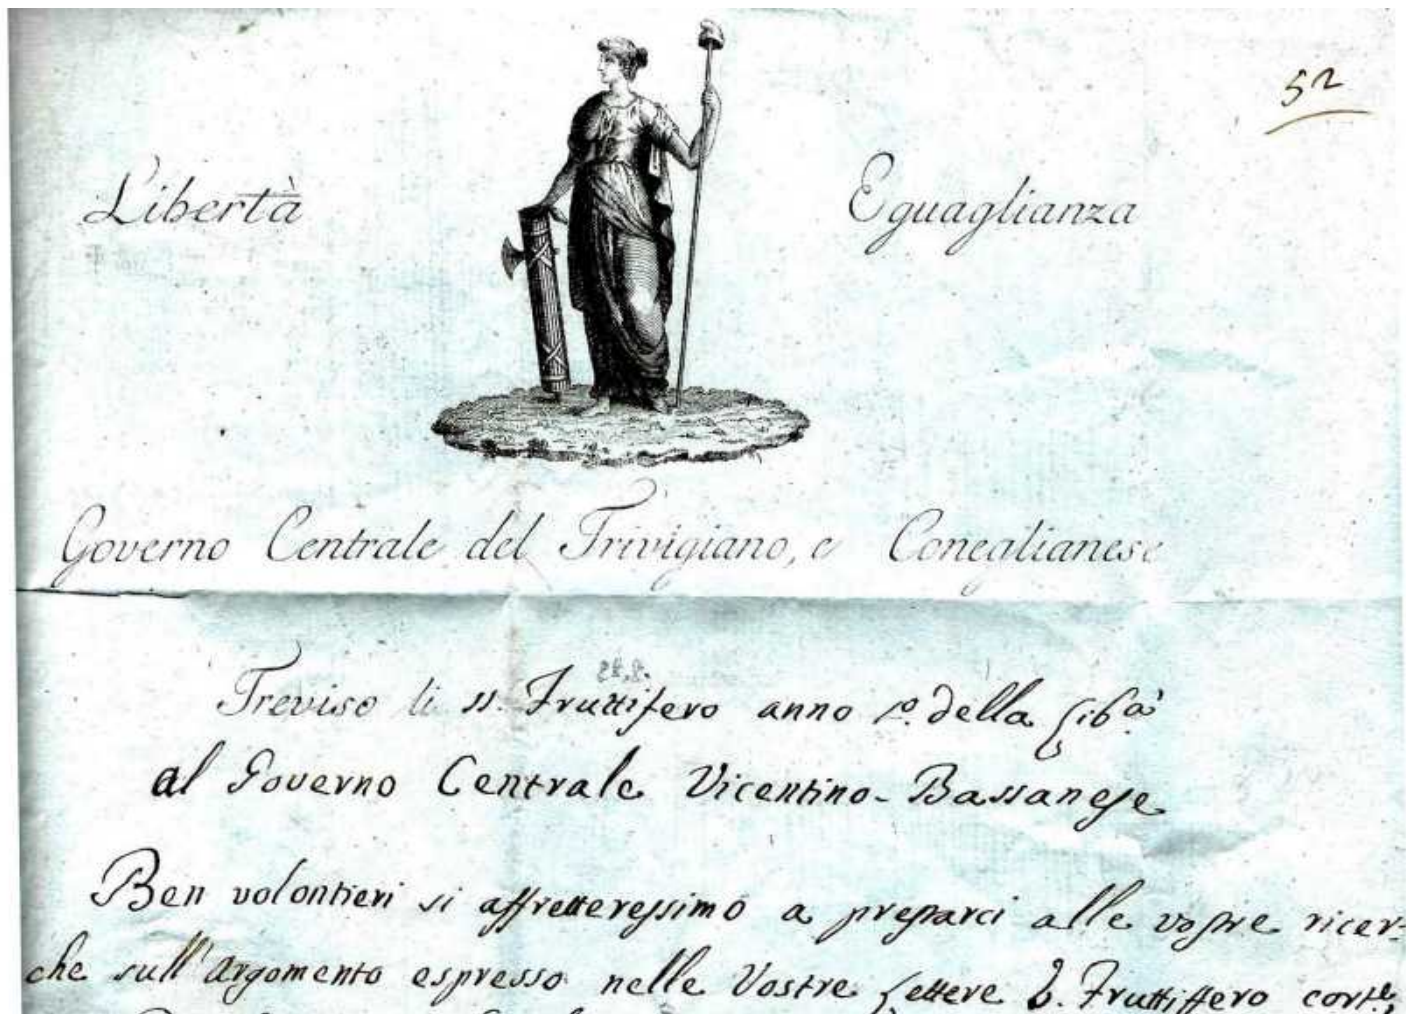 52
Libertà Eguaglianza
Governo Centrale del Trivigiano, e Coneglianese
Treviso li 11. Fruttifero anno 1.º della Lib.à
al Governo Centrale Vicentino-Bassanese
Ben volontieri si affretteressimo a prestarci alle vostre ricer-
che sull'argomento espresso nelle Vostre Lettere 2. Fruttiffero corr.e,